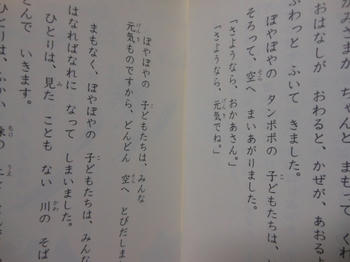 かみさまが ちゃんと まもって くれ
おはなしが おわると、かぜが、あおるよ
ふわっと ふいて きました。
ぽやぽやの タンポポの 子どもたちは、
そろって、空へ まいあがりました。
「さようなら、おかあさん。」
「さようなら、元気でね。」
ぽやぽやの 子どもたちは、みんな
元気ものですから、どんどん 空へ とびだしま
まもなく、ぽやぽやの 子どもたちは、みんな
はなればなれに なって しまいました。
ひとりは、見た ことも ない 川の そば
んで いきます。
ひとりは、ふかい